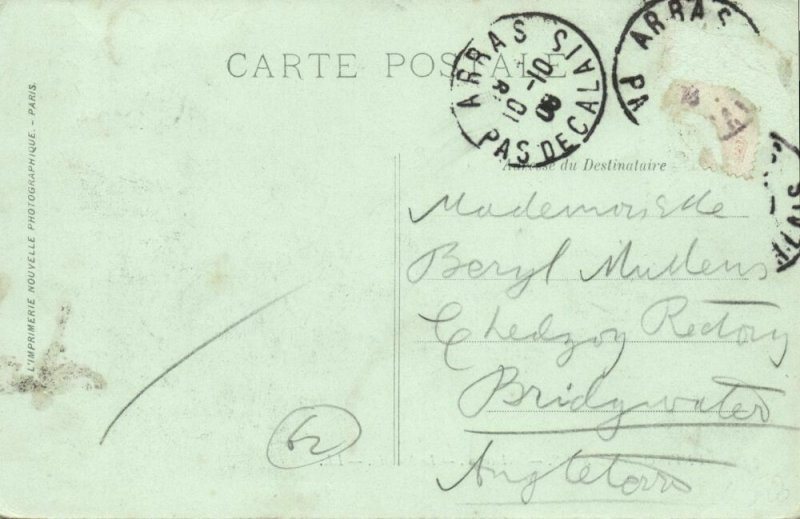 CARTE POSTALE
ARRAS
8
10 -10
08
PAS DE CALAIS
ARRAS
PA
ALAIS
Adresse du Destinataire
Mademoiselle
Beryl Mullens
Chedzoy Rectory
Bridgwater
Angleterre
62
L'IMPRIMERIE NOUVELLE PHOTOGRAPHIQUE. - PARIS.